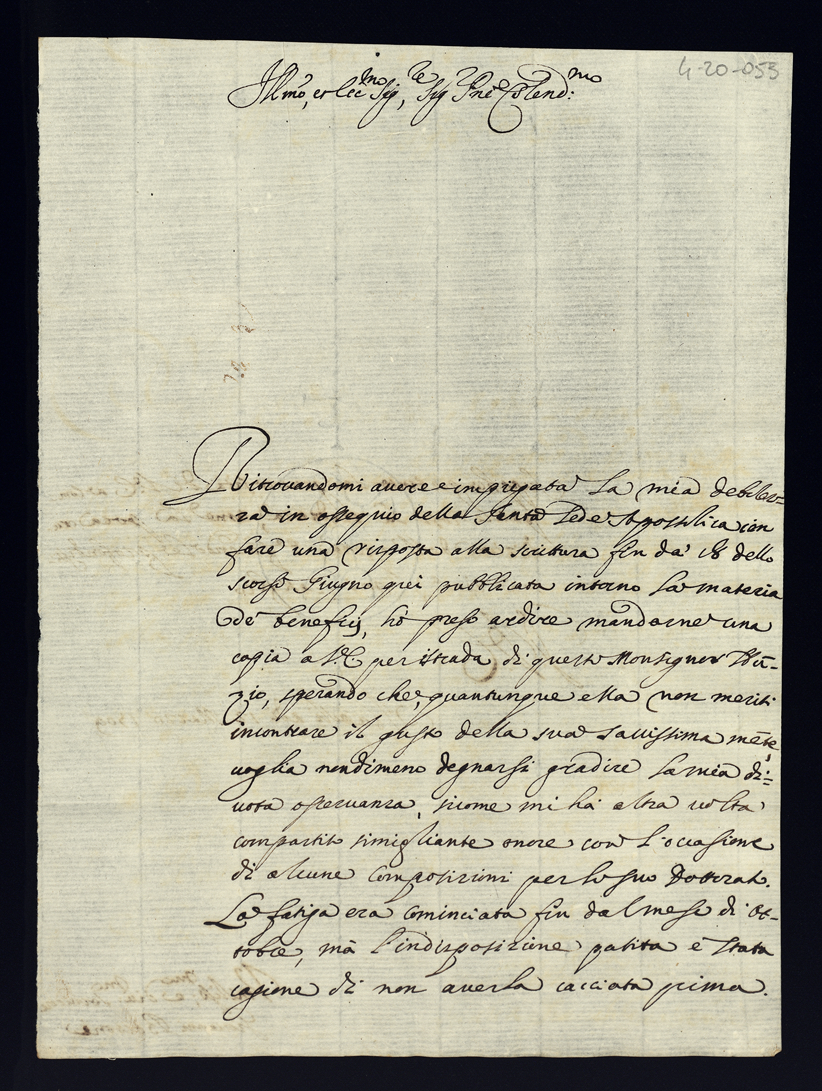 4-20-053
Ill.mo, et Ecc.mo Sig.re, Sig.re P.ne Colend.mo
Ritrovandomi avere impiegata la mia debolez=
za in ossequio della Santa Sede Apostolica con
fare una risposta alla scrittura fin da' 18 dello
scorso Giugno qui pubblicata intorno la materia
de' beneficj, hò preso ardire mandarne una
copia a V.E. per istrada di questo Monsignor Nũ-
zio, sperando che, quantunque ella non meriti
incontrare il gusto della sua savissima mẽte,
voglia nondimeno degnarsi gradire la mia di=
vota osservanza, sicome mi hà altra volta
compartito simigliante onore con l'occasione
di alcune composizioni per lo suo Dottorato.
La fatiga era cominciata fin dal mese di Ot-
tobre, mà l'indisposizione patita è stata
cagione di non averla cacciata prima.